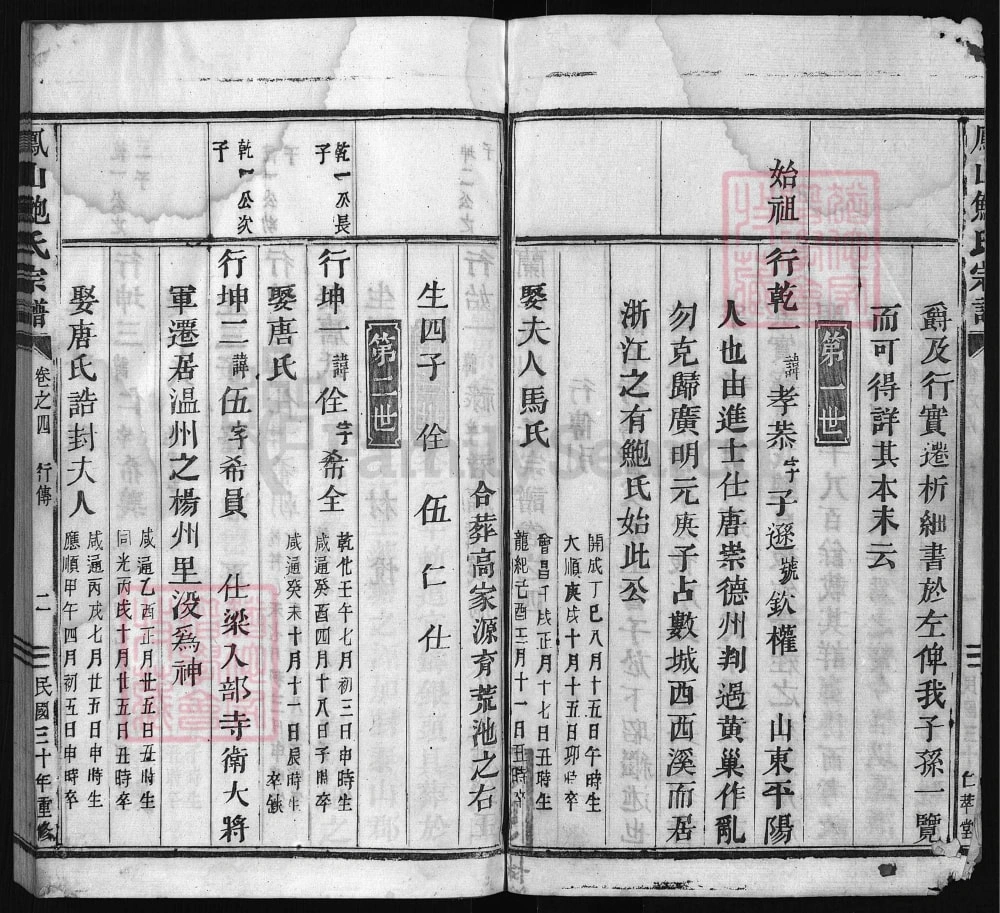 爵及行實遷析細書於左俾我子孫一覽
而可得詳其本末云
第一世
始祖
行乾一諱孝恭字子遜號欽權 山東平陽
人也由進士仕唐崇德州判過黃巢作亂
勿克歸廣明元庚子占數城西西溪而居
浙江之有鮑氏始此公
開成丁巳八月十五日午時生
大順庚戌十月十五日卯時卒
娶夫人馬氏
會昌壬戌正月十七日丑時生
龍紀己酉三月十一日丑時卒
合葬高家源育荒池之右
生四子佺 伍 仁 仕
第二世
乾一公長子
行坤一諱佺字希全
乾化壬午七月初三日申時生
咸通癸酉四月十八日子時卒
娶唐氏
咸通癸未十月十一日辰時生
卒缺
乾一公次子
行坤二諱伍字希員 仕梁入部寺衛大將
軍遷居溫州之楊州里没為神
咸通乙酉正月廿五日丑時生
同光丙戌十月廿五日丑時卒
娶唐氏誥封夫人
咸通丙戌七月廿五日申時生
應順甲午四月初五日申時卒
鳳山鮑氏宗譜
卷之四 行傳
二
民國三十年重修
鳳山鮑氏宗譜
仁萃堂